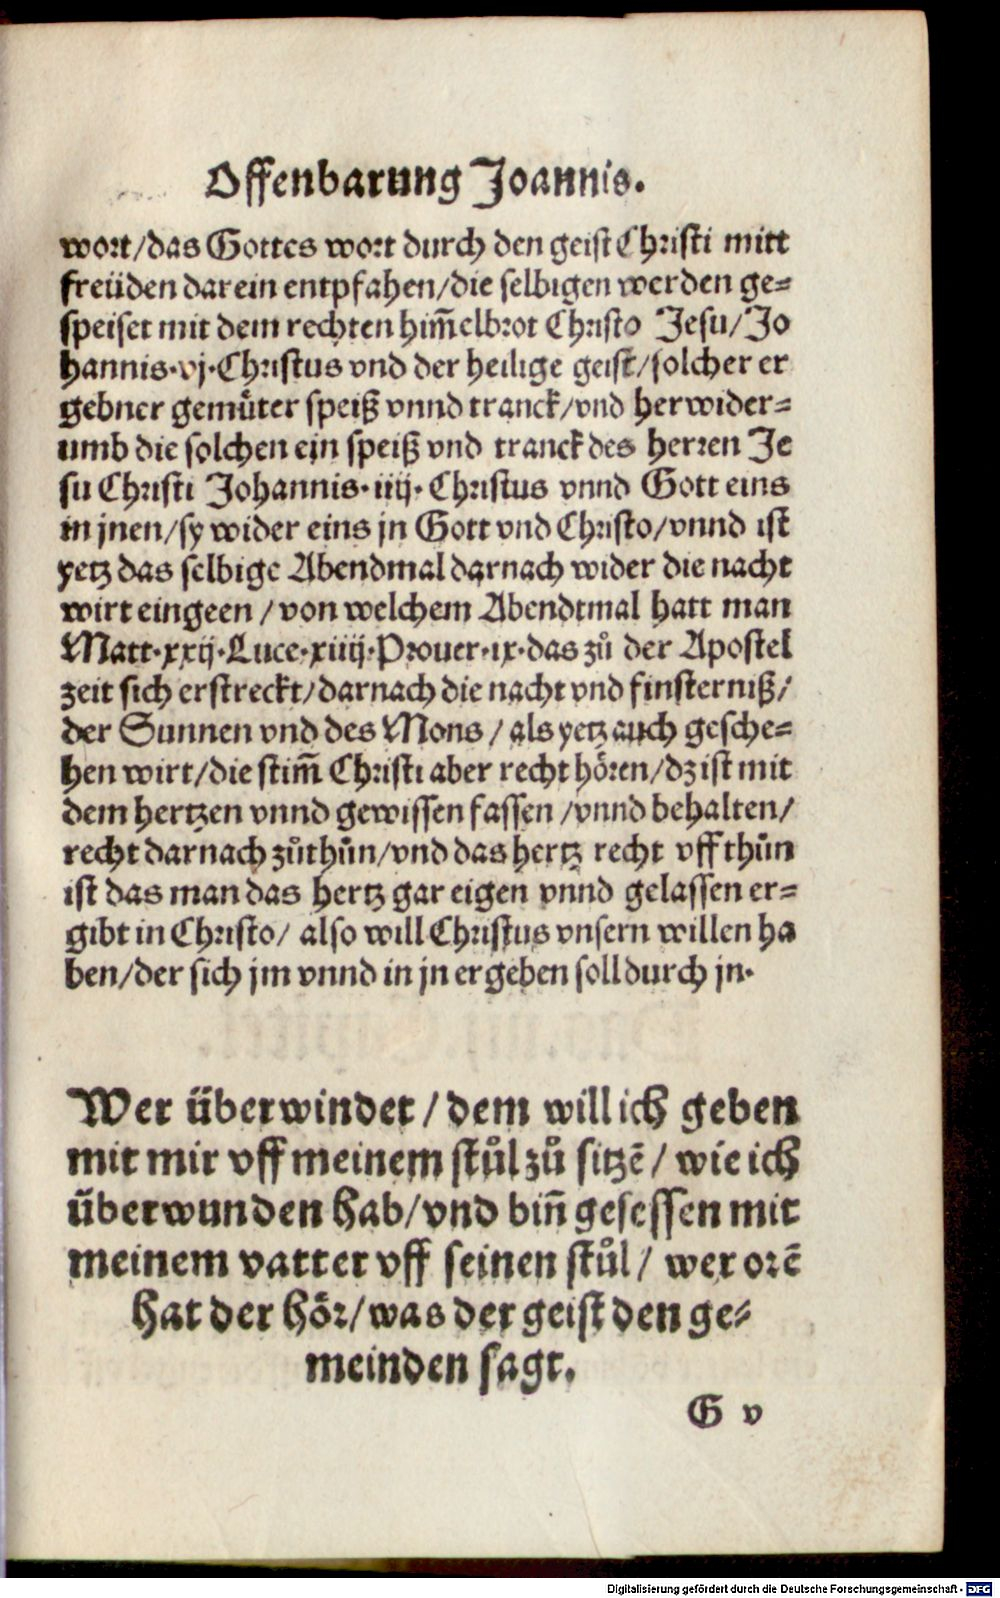 Offenbarung Joannis.
wort/das Gottes wort durch den geist Christi mitt
freüden darein entpfahen/die selbigen werden ge⸗
speiset mit dem rechten him̃elbrot Christo Jesu/Jo
hannis·vj·Christus vnd der heilige geist/solcher er
gebner gemuͤter speiß vnnd tranck/vnd herwider⸗
umb die solchen ein speiß vnd tranck des herren Je
su Christi Johannis·iiij· Christus vnnd Gott eins
in jnen/sy wider eins jn Gott vnd Christo/vnnd ist
yetz das selbige Abendmal darnach wider die nacht
wirt eingeen/von welchem Abendtmal hatt man
Matt·xxij·Luce·xiiij·Prouer·ix·das zů der Apostel
zeit sich erstreckt/darnach die nacht vnd finsterniß/
der Sunnen vnd des Mons/als yetz auch gesche⸗
hen wirt/die stim̃ Christi aber recht hoͤren/dz ist mit
dem hertzen vnnd gewissen fassen/vnnd behalten/
recht darnach zůthůn/vnd das hertz recht vffthůn
ist das man das hertz gar eigen vnnd gelassen er⸗
gibt in Christo/ also will Christus vnsern willen ha
ben/der sich jm vnnd in jn ergeben soll durch jn·
Wer überwindet/dem will ich geben
mit mir vff meinem stůl zů sitzẽ/wie ich
überwunden hab/vnd biñ gesessen mit
meinem vatter vff seinen stůl/ wer orẽ
hat der hoͤr/was der geist den ge⸗
meinden sagt.
G v
Digitalisierung gefördert durch die Deutsche Forschungsgemeinschaft - DFG